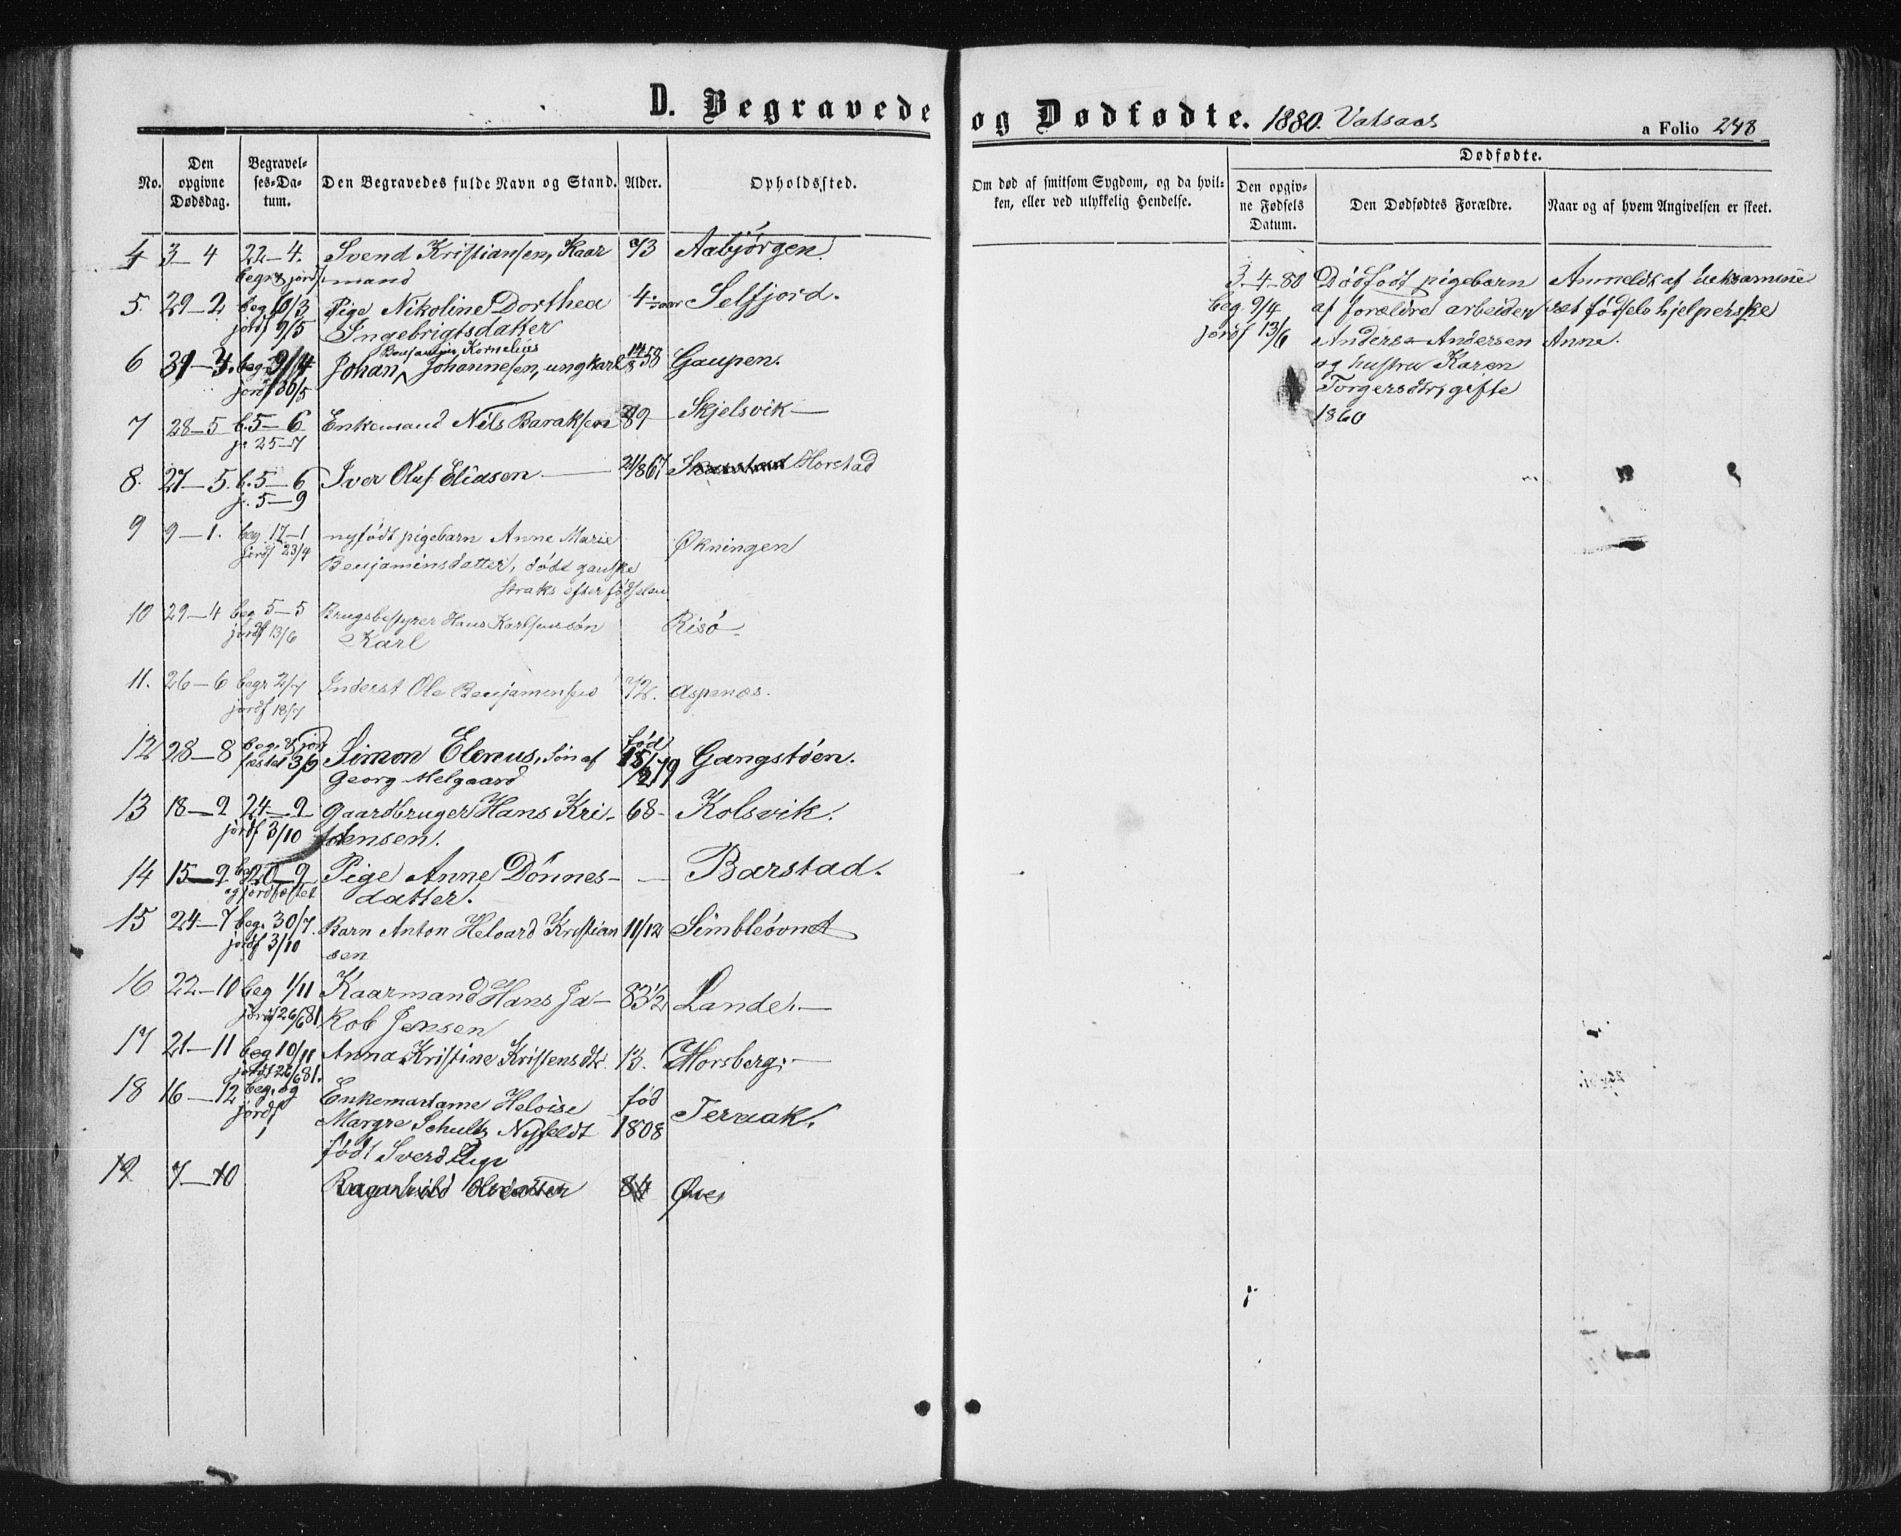 D. Begravede og Dødfødte. 1880. Vatsaas a Folio 248
No. Den opgivne Dødsdag. Begravelses-Datum. Den Begravedes fulde Navn og Stand. Alder. Opholdssted.
Om død af smitsom Sygdom, og da hvilken, eller ved ulykkelig Hendelse.
Dødfødte.
Den opgivne Fødsels Datum. Den Dødfødtes Forældre. Naar og af hvem Angivelsen er skeet.
4 3–4 22–4. Svend Kristiansen, Kaar 73 Aabjørgen.
begr & jordf. mand
5. 29–2 beg 10/3 Pige Nikoline Dorthea 4 aar Selfjord.
jordf 9/5 Ingebrigtsdatter
Benjamin Kornelius
6 31–3. beg. 9/4 Johan Johannesen, ungkarl 58 Gaupen.
jordf 30/5
7 28–5 b. 5–6 Enkemand Nils Baraksen 89 Skjelsvik
j. 25–7
8. 27–5. b. 5–6 Iver Oluf Eliasen 21/8 67 Horstad
j. 5–9
9 9–1. beg 17–1 nyfødt pigebarn Anne Marie Økningen
jordf 23/4 Benjaminsdatter, død ganske
straks efter fødselen
10 29–4 beg 5–5 Brugsbestyrer Hans Karlsensøn Risö
jordf 13/6 Karl
11. 26–6 begr 2/7 Inderst Ole Benjaminsen 72. Aspenæs.
jordf 18/7
12 28–8 beg. & jord Simon Elenus, Søn af fød 15/2 79 Gangstøen.
fæstet 3/9 Georg Melgaard
13 18–9 24–9 Gaardbruger Hans Kri- 68 Kolsvik.
jordf 3/10 stensen.
14 15–9 beg 20–9 Pige Anne Dönnes- — Barstad.
og jordfæstet datter.
15 24–7 beg. 30/7. Barn Anton Heloard Kristian 11/12 Simbleövnet
jordf 3/10 sen
16 22–10 beg 1/11 Kaarmand Hans Ja- 83½ Lande.
jordf 26/6 81. kob Jensen
17 21–11 beg 10/11 Anna Kristine Kristensdtr. 13. Horsberg.
jordf 26/6 81.
18 16–12 beg. og Enkemadame Heloise fød Terraak.
jordf Margre Schultz Nyfeldt 1808
født Sverdrup
19 7–10 Ragnhild Olsdatter 84 Øvre
3–4–80 Dödfödt pigebarn Anmeldt af ueksamine
beg 9/4 af forældre arbeider ret fødsels hjelperske
jordf 13/6 Anders Andersen Anne.
og hustru Karen
Torgersdtr, gifte
1860